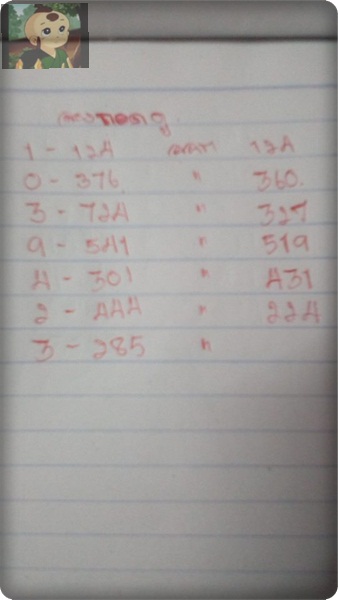 1 - 124 124
0 - 376. " 360.
3 - 724 " 327
9 - 541 " 519
4 - 301 " 431
2 - 444 " 224
3 - 285 "